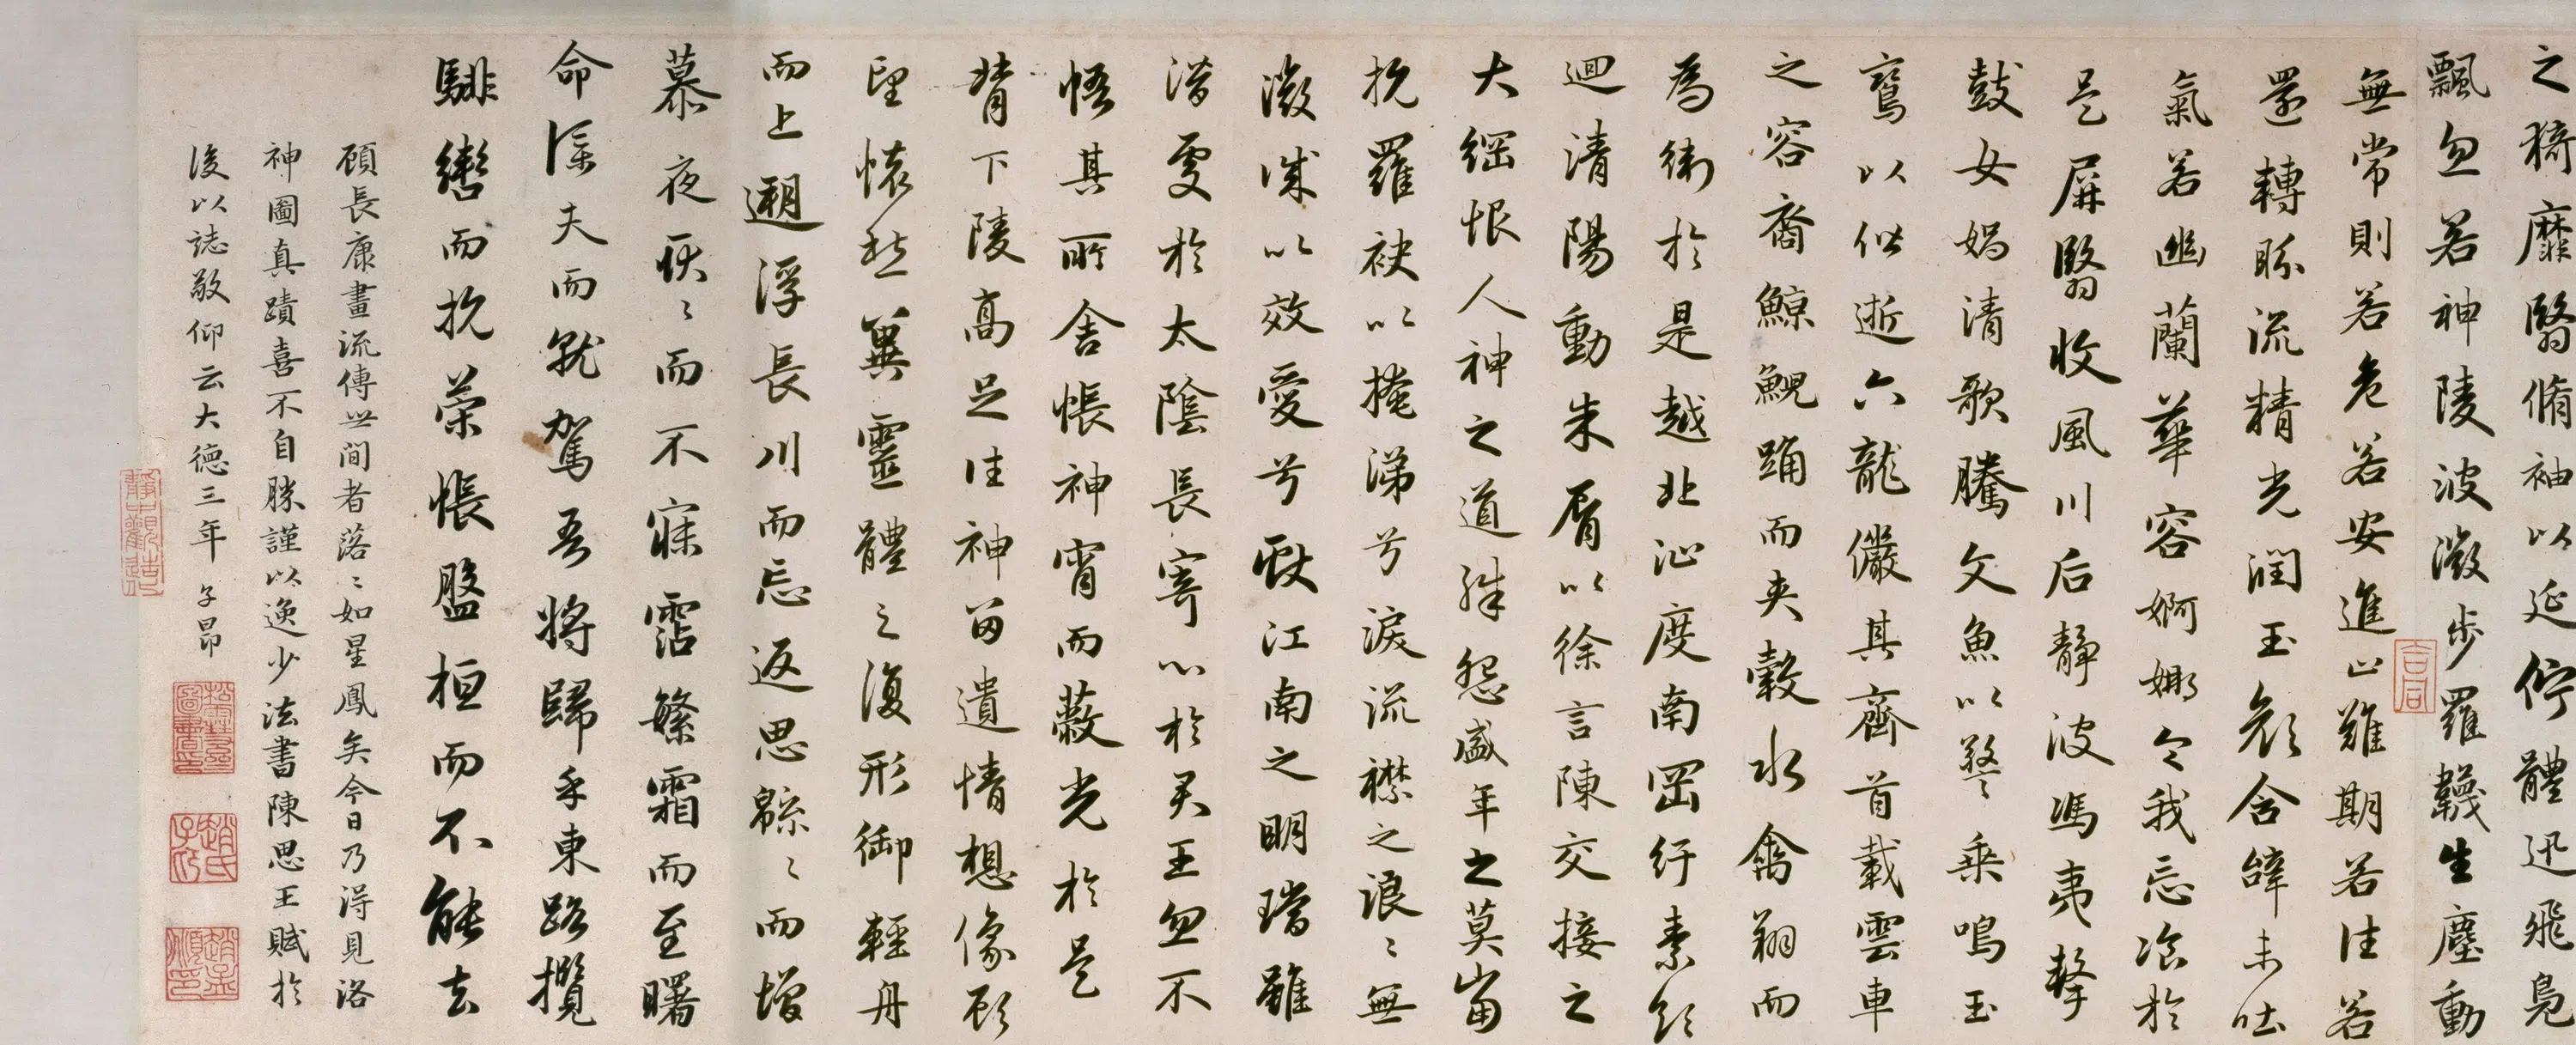 之猗靡翳脩袖以延佇體迅飛鳧
飄忽若神陵波微步羅韈生塵動
無常則若危若安進止難期若往若
還轉眄流精光潤玉顏含辭未吐
氣若幽蘭華容婀娜令我忘飡於
是屏翳收風川后靜波馮夷擊
鼓女媧清歌騰文魚以警乘鳴玉
鸞以偕逝六龍儼其齊首載雲車
之容裔鯨鯢踊而夾轂水禽翔而
為衛於是越北沚度南岡紆素領
迴清陽動朱脣以徐言陳交接之
大綱恨人神之道殊怨盛年之莫當
抗羅袂以掩涕兮淚流襟之浪〻無
微誠以效愛兮獻江南之明璫雖
潛處於太陰長寄心於君王忽不
悟其所舍悵神宵而蔽光於是
背下陵高足往神留遺情想像顧
望懷愁冀靈體之復形御輕舟
而上遡浮長川而忘返思緜〻而增
慕夜耿〻而不寐霑繁霜而至曙
命僕夫而就駕吾將歸乎東路攬
騑轡而抗策悵盤桓而不能去
顧長康畫流傳世間者落〻如星鳳矣今日乃得見洛
神圖真蹟喜不自勝謹以逸少法書陳思王賦於
後以誌敬仰云大德三年 子昂
趙氏子昂
趙孟頫印